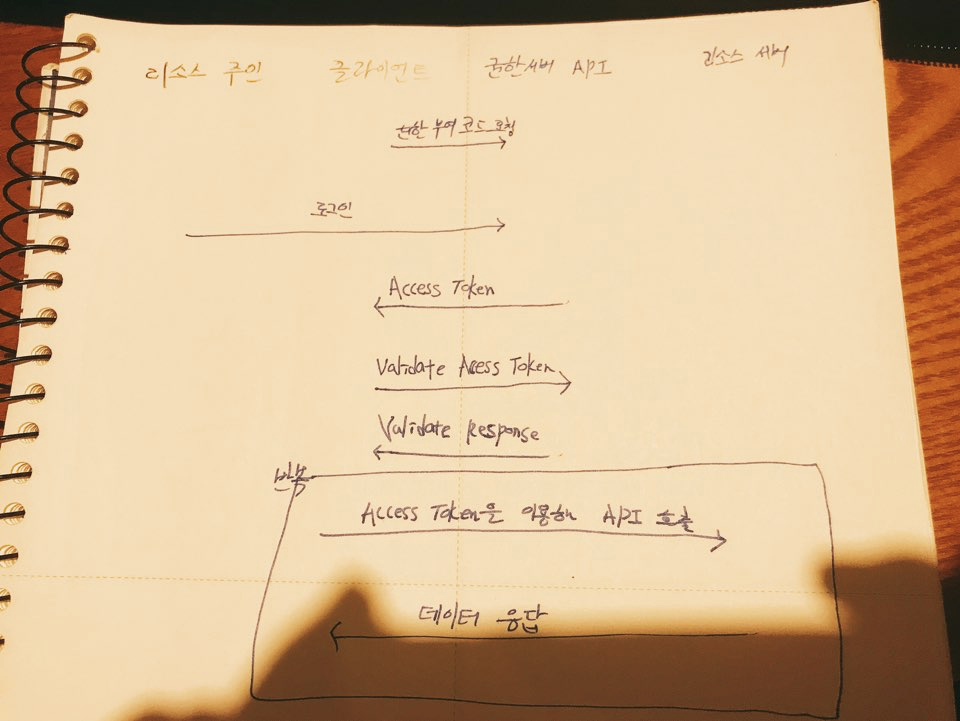 리소스 주인 클라이언트 권한서버 API 리소스 서버
권한 부여 코드 요청
로그인
Access Token
Validate Access Token
Validate Response
반복
Access Token을 이용해 API 호출
데이터 응답